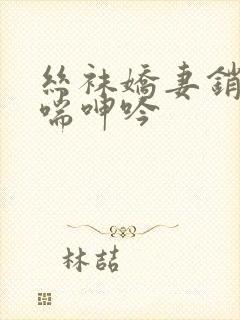 絲袜嬌妻銷
喘呻吟
林喆